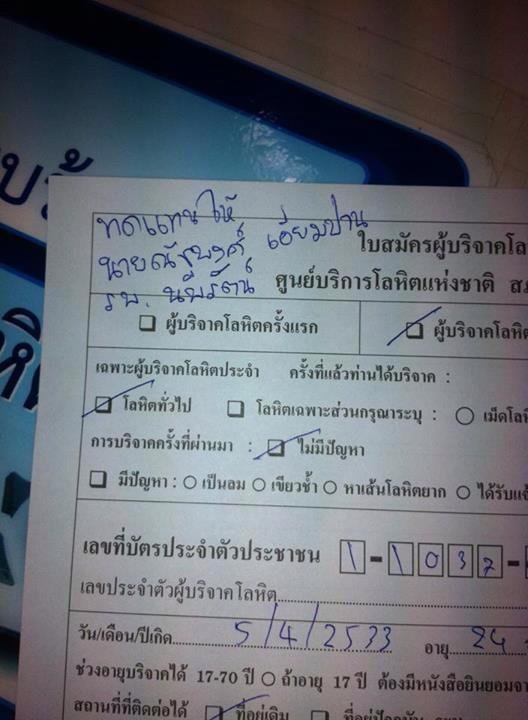 ทดแทนให้
นายณัฐพงศ์ เอี่ยมปาน
รพ. นพรัตน์
ใบสมัครผู้บริจาคโล
ศูนย์บริการโลหิตแห่งชาติ
ผู้บริจาคโลหิตครั้งแรก ผู้บริจาคโลหิต
เฉพาะผู้บริจาคโลหิตประจำ ครั้งที่แล้วท่านได้บริจาค :
โลหิตทั่วไป โลหิตเฉพาะส่วนกรุณาระบุ : เม็ดโล
การบริจาคครั้งที่ผ่านมา : ไม่มีปัญหา
มีปัญหา : เป็นลม เขียวช้ำ หาเส้นโลหิตยาก ได้รับ
เลขที่บัตรประจำตัวประชาชน 1-1037-
เลขประจำตัวผู้บริจาคโลหิต
วัน/เดือน/ปีเกิด 5/4/2533 อายุ 24
ช่วงอายุบริจาคได้ 17-70 ปี ถ้าอายุ 17 ปี ต้องมีหนังสือยินยอมจา
สถานที่ที่ติดต่อได้ ที่อยู่เดิม